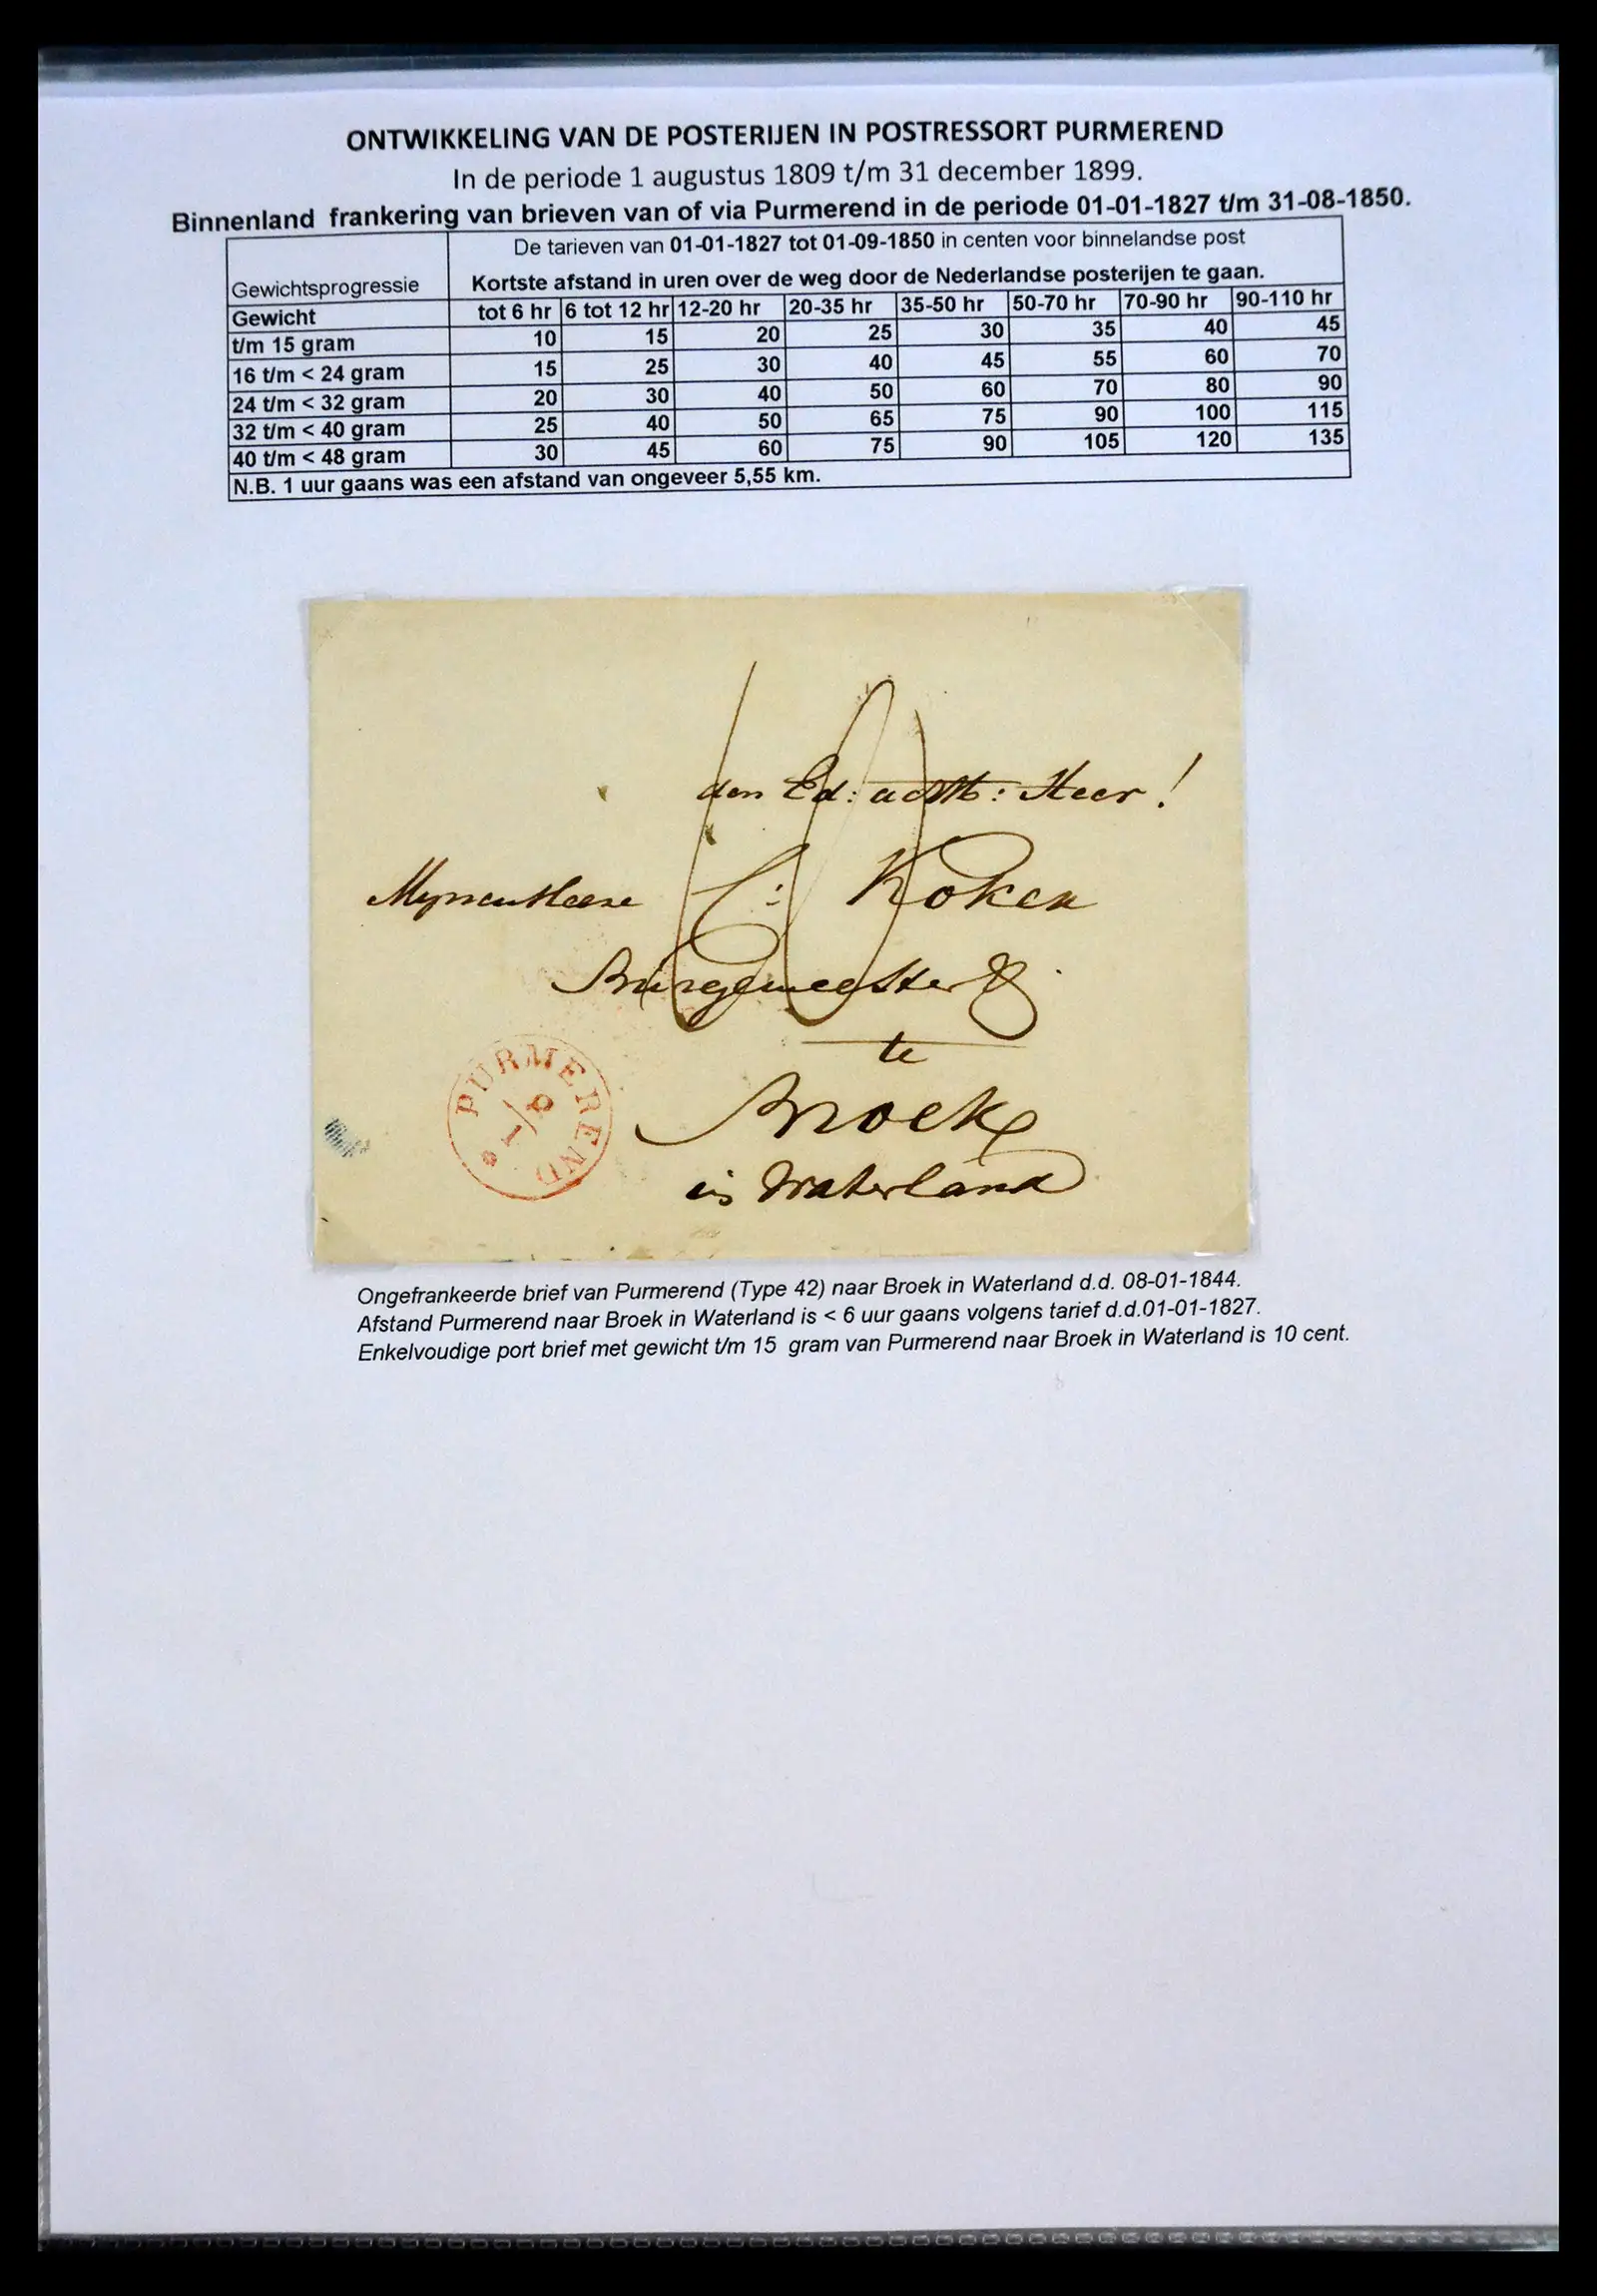 ONTWIKKELING VAN DE POSTERIJEN IN POSTRESSORT PURMEREND
In de periode 1 augustus 1809 t/m 31 december 1899.
Binnenland frankering van brieven van of via Purmerend in de periode 01-01-1827 t/m 31-08-1850.
De tarieven van 01-01-1827 tot 01-09-1850 in centen voor binnelandse post
Gewichtsprogressie Kortste afstand in uren over de weg door de Nederlandse posterijen te gaan.
Gewicht tot 6 hr 6 tot 12 hr 12-20 hr 20-35 hr 35-50 hr 50-70 hr 70-90 hr 90-110 hr
t/m 15 gram 10 15 20 25 30 35 40 45
16 t/m < 24 gram 15 25 30 40 45 55 60 70
24 t/m < 32 gram 20 30 40 50 60 70 80 90
32 t/m < 40 gram 25 40 50 65 75 90 100 115
40 t/m < 48 gram 30 45 60 75 90 105 120 135
N.B. 1 uur gaans was een afstand van ongeveer 5,55 km.
10
den Ed: achtb: Heer!
C: Koker
Burgemeester
te
Broek
in Waterland
PURMEREND
8/1
Ongefrankeerde brief van Purmerend (Type 42) naar Broek in Waterland d.d. 08-01-1844.
Afstand Purmerend naar Broek in Waterland is < 6 uur gaans volgens tarief d.d.01-01-1827.
Enkelvoudige port brief met gewicht t/m 15 gram van Purmerend naar Broek in Waterland is 10 cent.